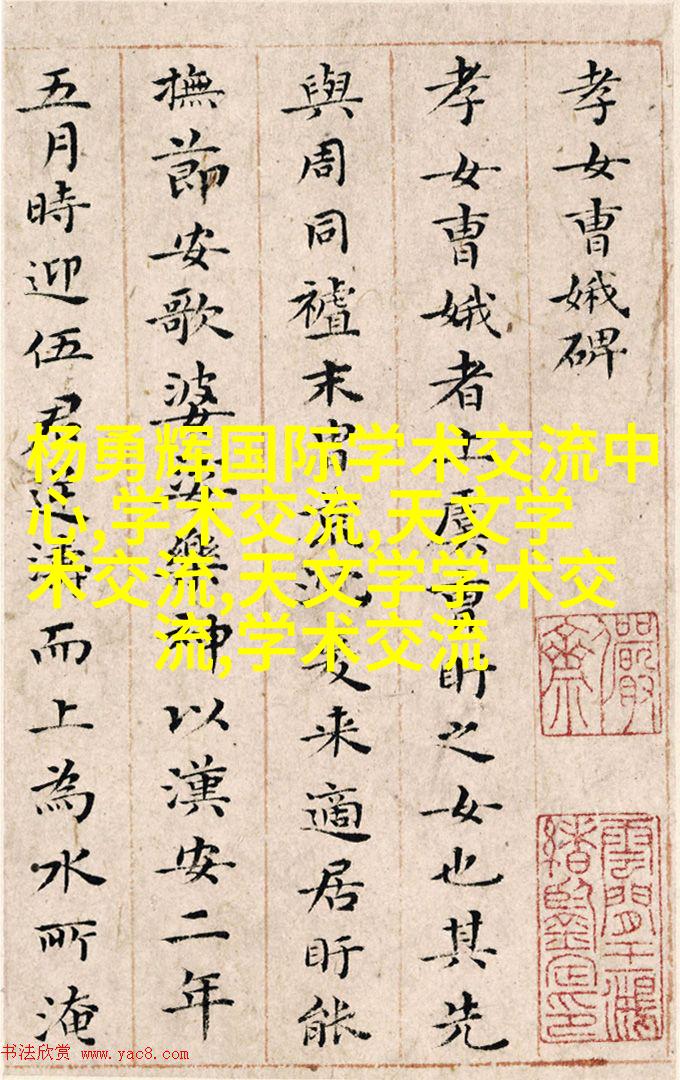 孝女曹娥碑
孝女曹娥者上虞曹盱之女也其先
與周同禮末胄流沉爰来適居盱能
撫節安歌婆娑樂神以漢安二年
五月時迎伍君逆濤而上為水所淹
杨勇辉国际学术交流中
心,学术交流,天文学
术交流,天文学学术交
流,学术交流
书法欣赏 www.yac8.com